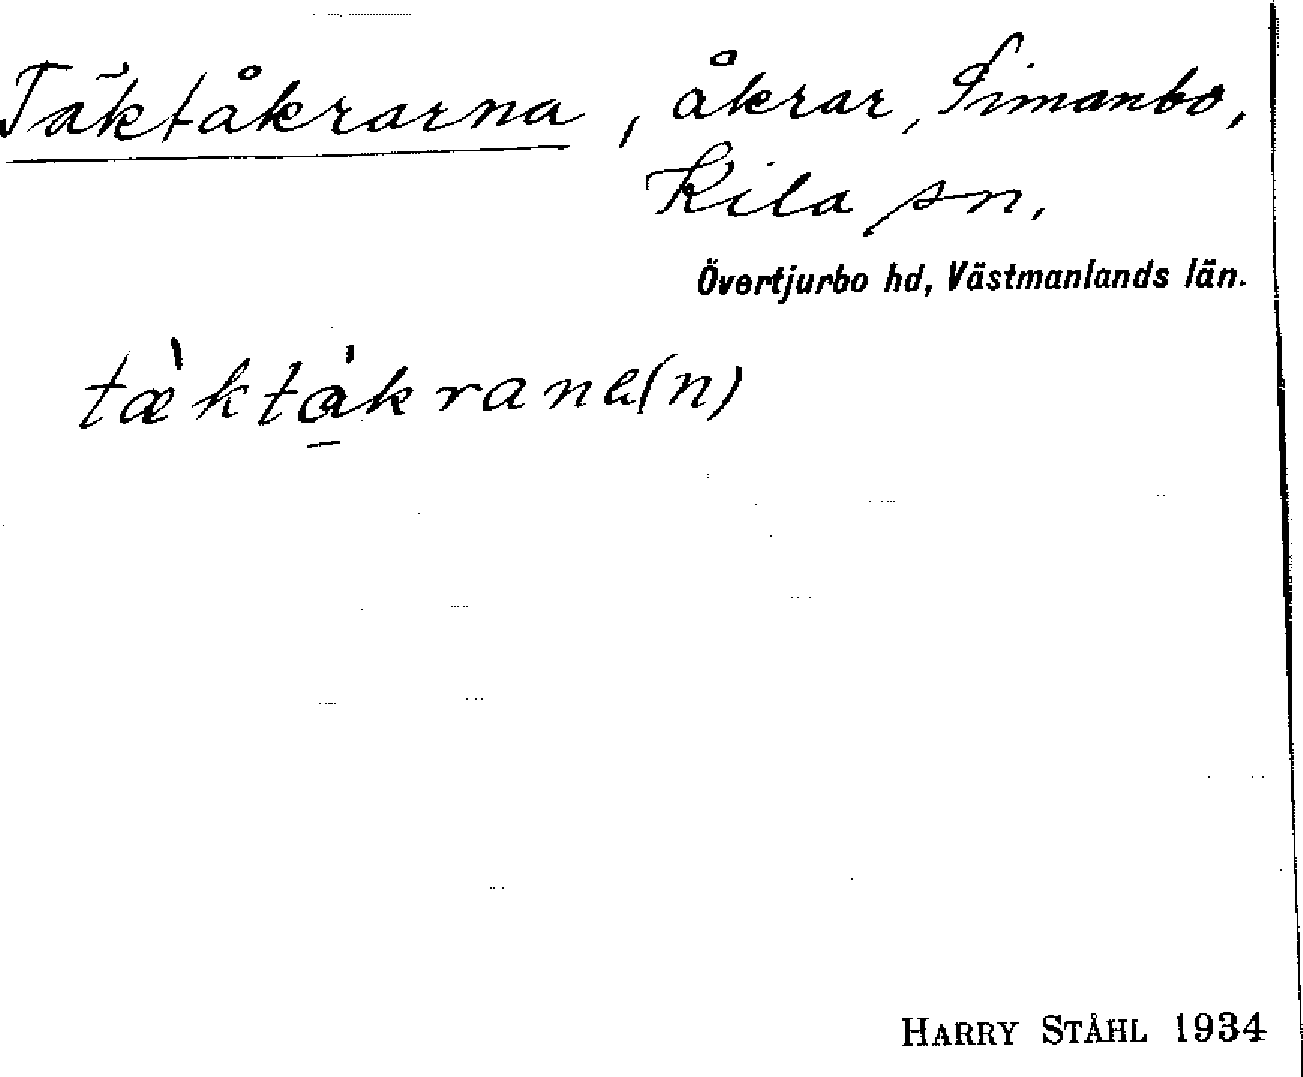 Täktåkrarna, åkrar, Simanbo,
Kila sn,
Övertjurbo hd, Västmanlands län.
tæ̀ktåkrana(n)
HARRY STÅHL 1934